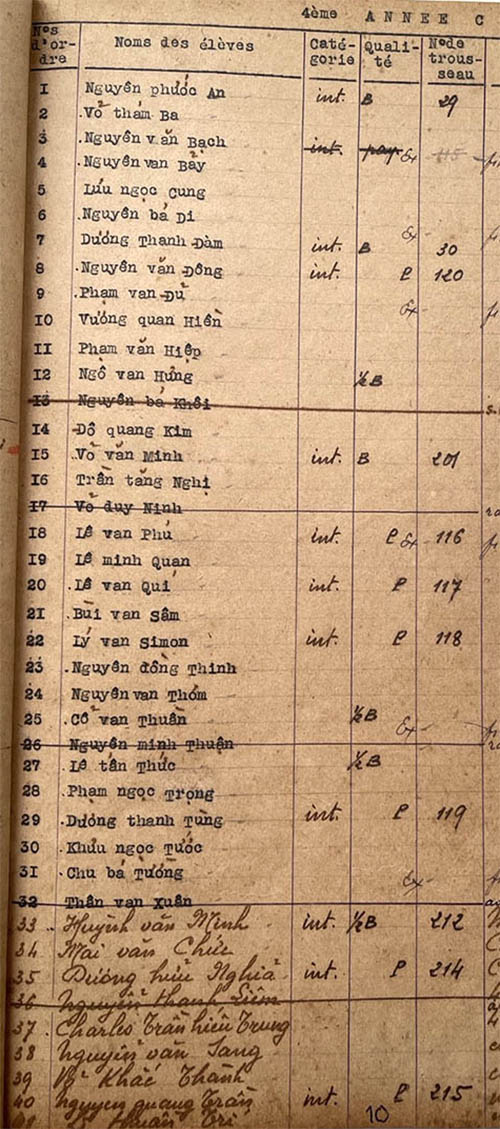 4ème ANNEE C
Nos d'or- dre Noms des élèves Caté- gorie Quali- té No de trous- seau
1 Nguyên phước An int. B 29
2 Võ thám Ba
3 Nguyên văn Bạch int. pay 115
4 Nguyên van Bảy Ex
5 Lưu ngọc Cung
6 Nguyên bá Di
7 Dương Thanh Đàm Ex int. B 30
8 Nguyên văn Đông int. P 120
9 Phạm van Dử Ex
10 Vương quan Hiền
11 Phạm văn Hiệp
12 Ngô van Hưng ½B
13 Nguyên bá Khôi
14 Đỗ quang Kim
15 Võ văn Minh int. B 201
16 Trần tăng Nghị
17 Võ duy Ninh
18 Lê van Phú int. P Ex 116
19 Lê minh Quan
20 Lê van Quí int. P 117
21 Bùi van Sâm
22 Lý van Simon int. P 118
23 Nguyên đồng Thinh
24 Nguyên van Thơm
25 Cổ van Thuần ½B Ex
26 Nguyên minh Thuận
27 Lê tân Thức ½B
28 Phạm ngọc Trọng
29 Dương thanh Tùng int. P 119
30 Khưu ngọc Tước
31 Chu bá Tường Ex
32 Thân van Xuân
33 Huỳnh văn Minh int. ½B 212
34 Mai văn Chức
35 Dương hữu Nghĩa int. P 214
36 Nguyễn thanh Liêm
37 Charles Trần hiếu Trung
38 Nguyễn văn Sang
39 Võ Khắc Thành
40 Nguyen quang Trần int. P 215
Tri 10